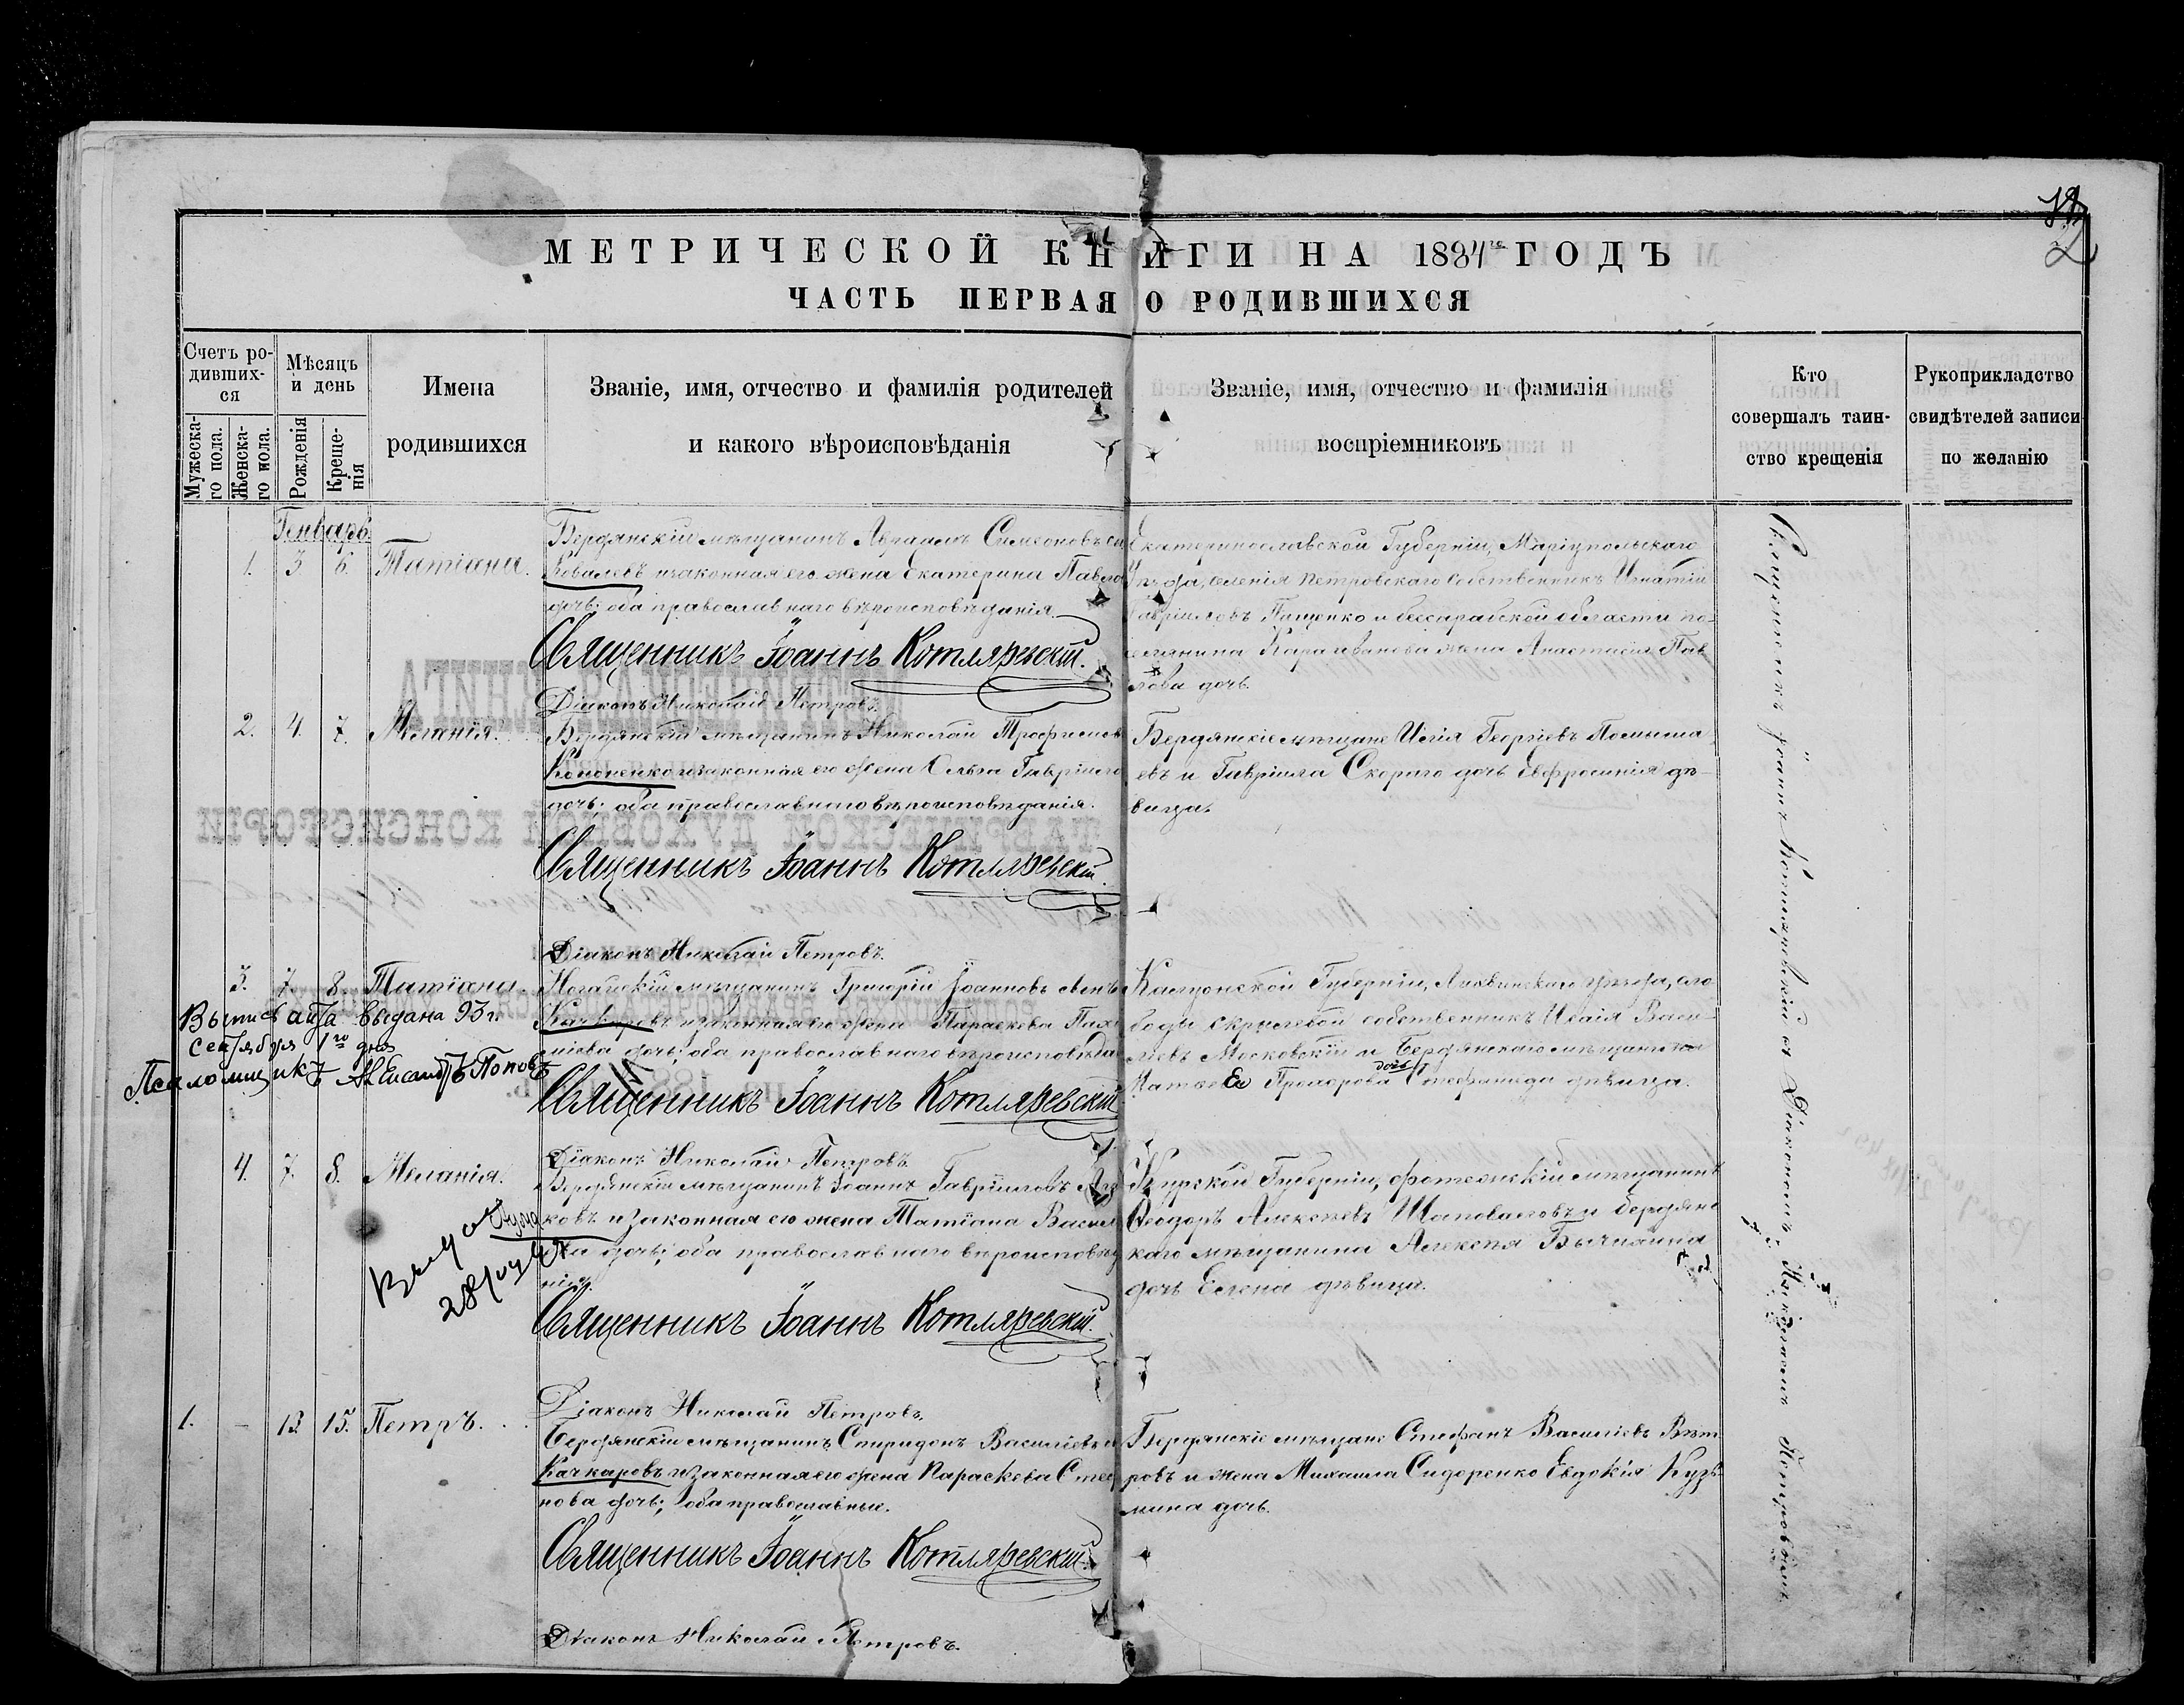 МЕТРИЧЕСКОЙ КНИГИ НА 1884 ГОДЪ
ЧАСТЬ ПЕРВАЯ О РОДИВШИХСЯ
Счетъ ро-
дивших-
ся
Мужеска-
го пола.
Женска-
го пола.
Мѣсяцъ
и день
Рожденія
Креще-
нія
Имена
родившихся
Званіе, имя, отчество и фамилія родителей
и какого вѣроисповѣданія
Званіе, имя, отчество и фамилія
воспріемниковъ
Кто
совершалъ таин-
ство крещенія
Рукоприкладство
свидѣтелей записи
по желанію
2
Генварь.
1. 3 6. Татіана.
Бердянскій мѣщанинъ Авраамъ Симеоновъ
Ковалевъ и законная его жена Екатерина Павло
дочь; оба православнаго вѣроисповѣданія.
Священникъ Іоаннъ Котляревскій.
Діаконъ Николай Петровъ.
Екатеринославской Губерніи, Маріупольскаго
селенія Петровскаго собственникъ Игнатій
Гавріиловъ Пащенко и бессарабской области по-
селянина жена Анастасія Пав
лова дочь.
2. 4. 7. Меланія.
Бердянскій мѣщанинъ Николай Трофимов
Кононенко и законная его жена Ольга Гавріило
дочь; оба православнаго вѣроисповѣданія.
Священникъ Іоаннъ Котляревскій.
Діаконъ Николай Петровъ.
Бердянскіе мѣщане Илія Георгіевъ
евъ и Гавріила Скораго дочь Евфросинія дѣ-
вица.
3. 7. 8. Татіана.
Выпись выдана 93 г.
сентября 1го дня
Псаломщикъ Поповъ
Ногайскій мѣщанинъ Григорій Іоанновъ
и законная его жена Параскева
дочь; оба православнаго вѣроисповѣда
Священникъ Іоаннъ Котляревскій
Діаконъ Николай Петровъ.
Калужской Губерніи, Лихвинскаго уѣзда, сло
боды собственникъ Исаія Васи-
ліевъ Московскій и Бердянскаго мѣщанина
Прохорова дочь Стефанида дѣвица.
4. 7. 8. Меланія.
28/
Бердянскій мѣщанинъ Іоаннъ Гавріиловъ
ковъ и законная его жена Татіана Васил
ева дочь; оба православнаго вѣроисповѣд
нія.
Священникъ Іоаннъ Котляревскій.
Діаконъ Николай Петровъ.
Курской Губерніи, фатежскій мѣщанинъ
Ѳеодоръ Алексѣевъ Шаповаловъ и бердянс
каго мѣщанина Алексѣя
дочь Елена дѣвица.
1. – 13 15. Петръ.
Бердянскій мѣщанинъ Спиридонъ Василіевъ
Качкаровъ и законная его жена Параскева Стеф
нова дочь; оба православные.
Священникъ Іоаннъ Котляревскій.
Діаконъ Николай Петровъ.
Бердянскіе мѣщане Стефанъ Василіевъ Вѣт
ровъ и жена Михаила Сидоренко Евдокія Кузь
мина дочь.
Священникъ Іоаннъ Котляревскій съ Діакономъ Николаемъ Петровымъ.